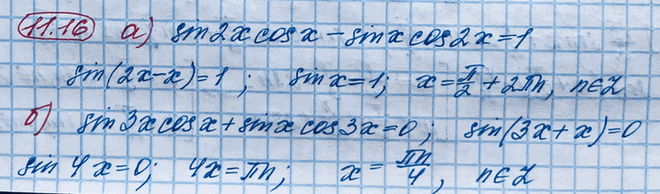 11.16 а) sin2x cosx - sinx cos2x = 1
sin(2x-x) = 1; sinx = 1; x = π/2 + 2πn, n∈Z
б) sin3x cosx + sinx cos3x = 0; sin(3x+x) = 0
sin 4x = 0; 4x = πn; x = πn/4, n∈Z